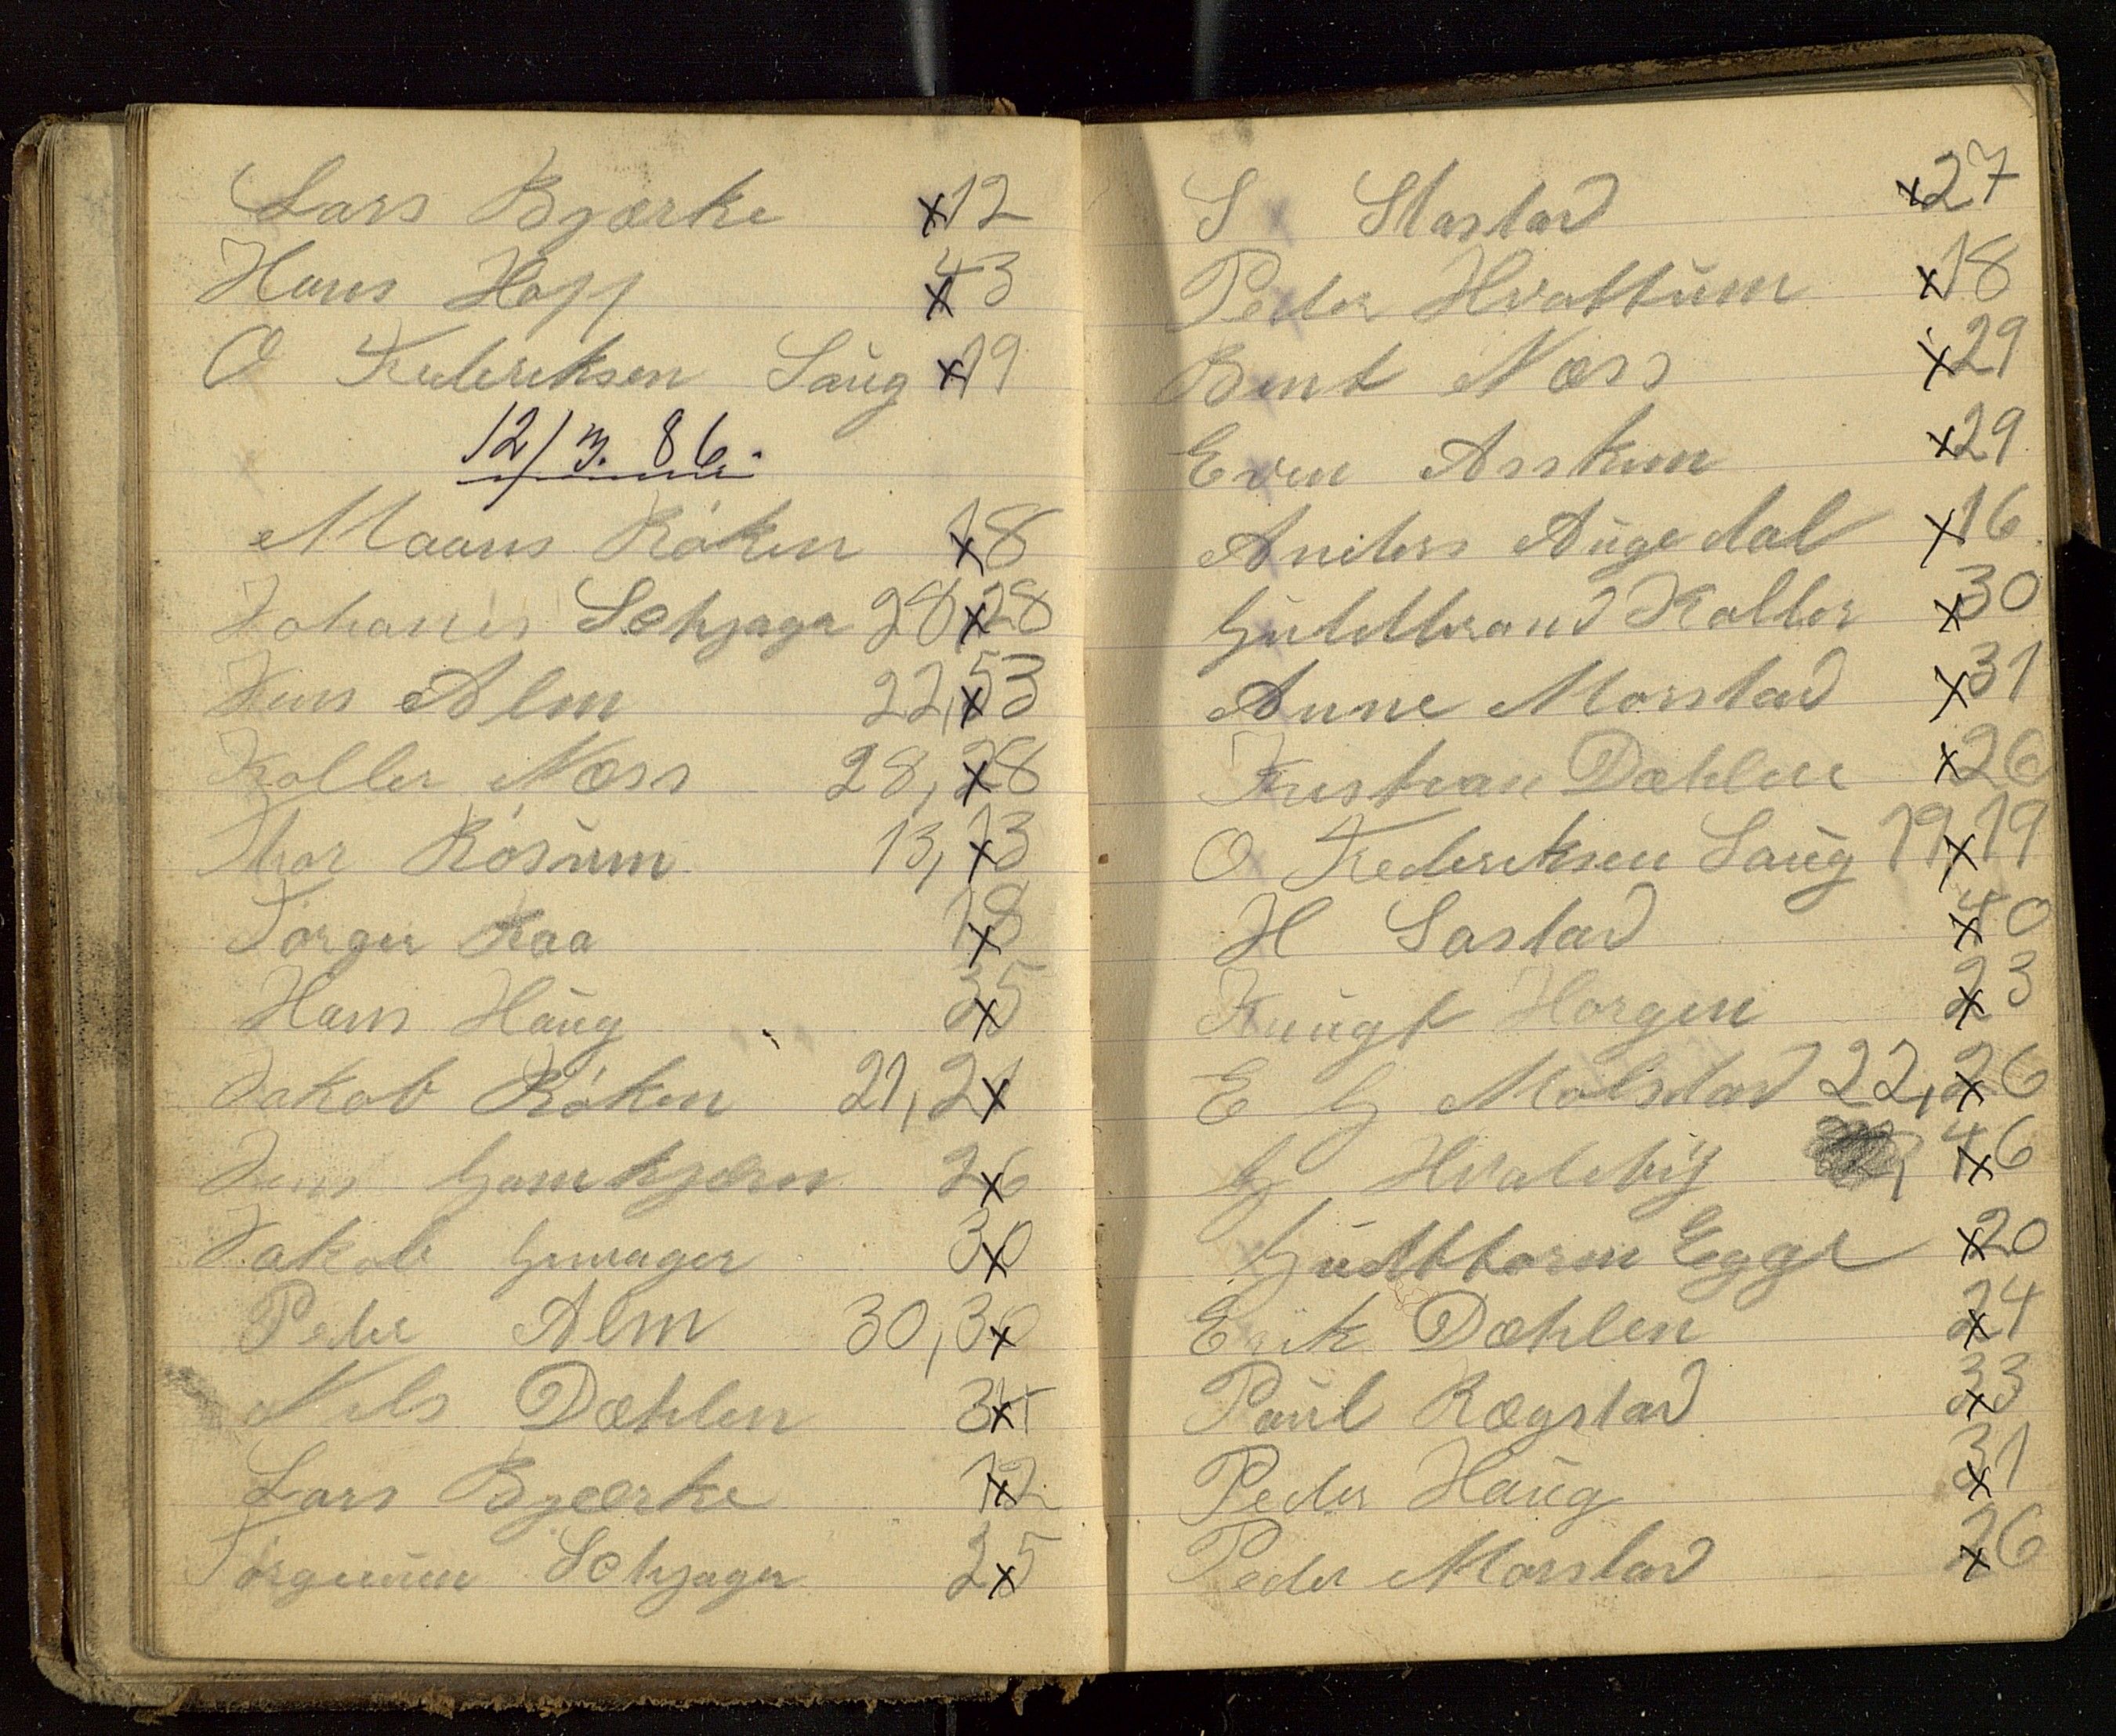 Lars Bjærke x12
Hans Hopp x43
O Frederiksen Saug x19
12/3. 86.
Maans Röken x18
Johanes Schjager 28 x28
Jens Alm 22, x53
Koller Næss 28, x28
Thor Rösum 13, x13
Torger Kaa x18
Hans Haug 3x5
Jakob Röken 21, 2x1
Jens 2x6
Jakob 3x0
Peder Alm 30, 3x0
Nils Dæhlen 3x4
Lars Bjærke 1x2
Torgeuum Schjager 2x5
S Stastad x27
Peder Hvattum x18
Bent Næss x29
Even Asskum x29
Anders Augedal x16
Guldbrand Koller x30
Anne Morstad x31
Kristian Dæhlen x26
O Frederiksen Saug 19, x19
H Sastad x40
Knugt Horgen x23
E G Molstad 22, x26
G Hvaleby 4x6
Gudttorm Egge x20
Erik Dæhlen x24
Paul Rægstad x33
Peder Haug x31
Peder Morstad x26